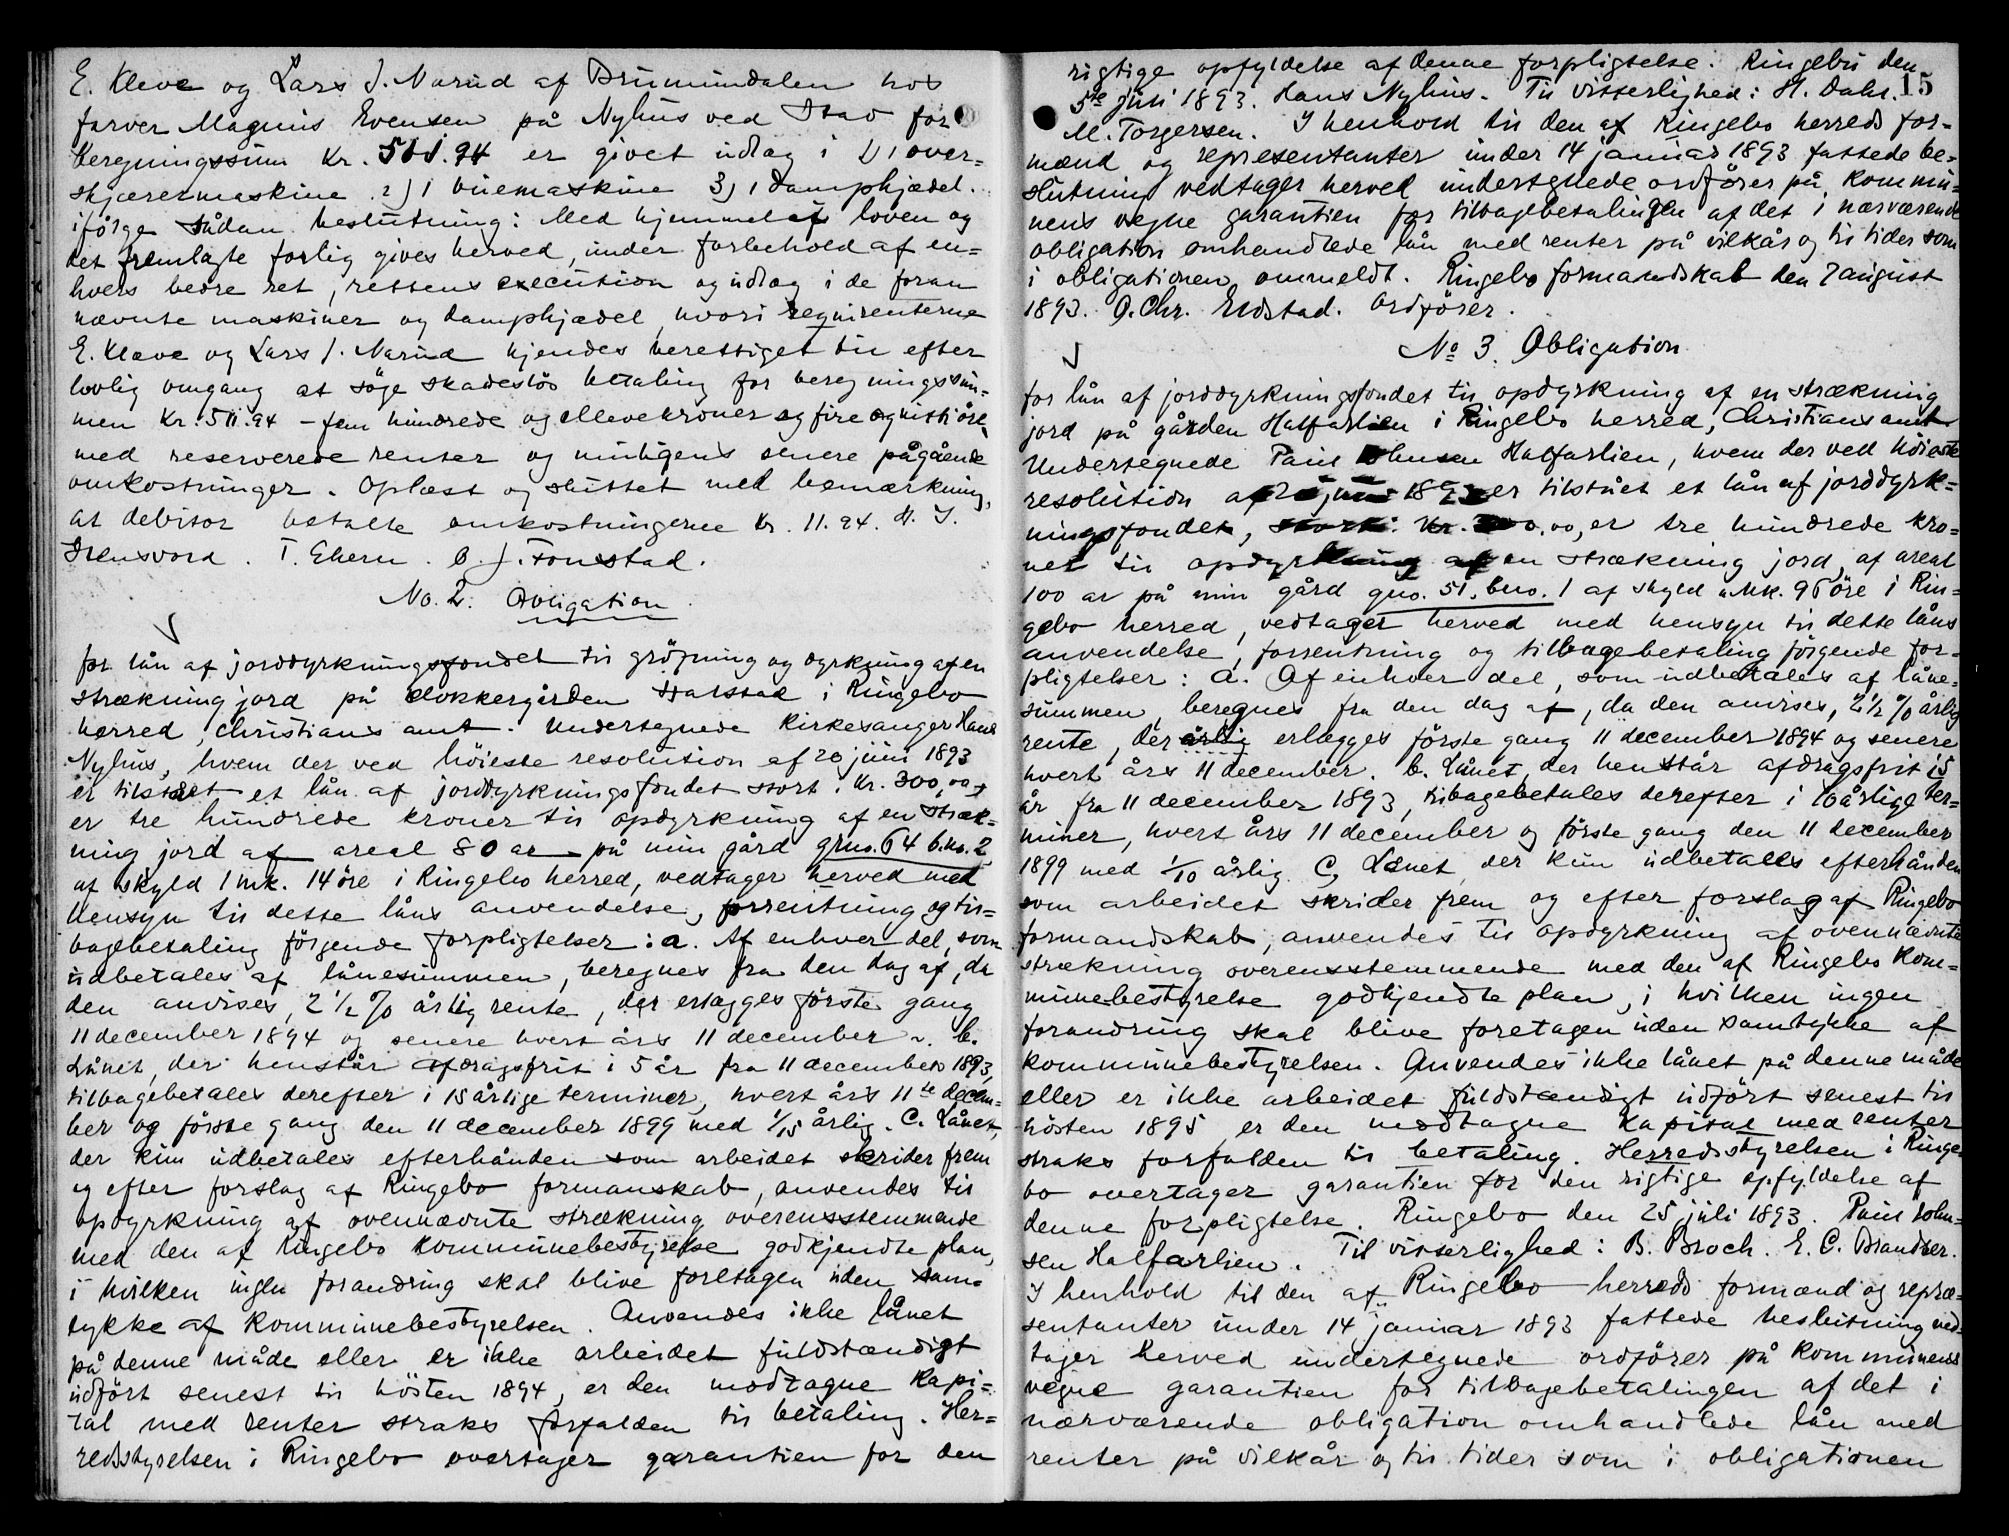 E. Kleve og Lars J. Narud af Brumundalen hos
farver Magnus Evensen på Nyhus ved Stav for
beregningssum Kr. 511.94 er givet udlæg i 1) 1 over-
skjærermaskine 2) 1 ruemaskine 3) 1 dampkjædel.
ifölge sådan beslutning: Med hjemmel af loven og
det fremlagte forlig gives herved, under forbehold af en-
hvers bedre ret, rettens execution og udlæg i de foran
nævnte maskiner og dampkjædel, hvori reqvirenterne
E. Kleve og Lars J. Narud kjendes berettiget til efter
lovlig omgang at söge skadeslös betaling for beregningssum-
men Kr. 511.94 - fem hundrede og elleve kroner og fire og nitti öre
med reserverede renter og muligens senere pågående
omkostninger. Oplæst og sluttet med bemærkning,
at debitor betalte omkostningerne Kr. 11.94. H. J.
Stensvord. T. Ekern. O. J. Fonstad.
No. 2. Obligation
for lån af jorddyrkningsfondet til gröfning og dyrkning af en
strækning jord på klokkergården Stalstad i Ringebo
herred, Christians amt. Undertegnede Kirkesanger Hans
Nyhus, hvem der ved höieste resolution af 20 juni 1893
er tilstået et lån af jorddyrkningsfondet stort Kr. 300,00,
er tre hundrede kroner til opdyrkning af en stræk-
ning jord af areal 80 ar på min gård grno. 64 b.no. 2
af skyld 1 mk. 14 öre i Ringebo herred, vedtager herved med
hensyn til dette låns anvendelse, forrentning og til-
bagebetaling fölgende forpligtelser: a. Af enhver del, som
udbetales af lånesummen, beregnes fra den dag af, da
den anvises, 2 1/2 % årlig rente, der erlægges förste gang
11 december 1894 og senere hvert års 11 december. b.
Lånet, der henstår afdragsfrit i 5 år fra 11 december 1893,
tilbagebetales derefter i 15 årlige terminer, hvert års 11te decem-
ber og förste gang den 11 december 1899 med 1/15 årlig. C. Lånet,
der kun udbetales efterhånden som arbeidet skrider frem
og efter forslag af Ringebo formanskab, anvendes til
opdyrkning af ovennævnte strækning overensstemmende
med den af Ringebo Kommunebestyrelse godkjendte plan,
i hvilken ingen forandring skal blive foretagen uden sam-
tykke af Kommunebestyrelsen. Anvendes ikke lånet
på denne måde eller er ikke arbeidet fuldstændigt
udfört senest til hösten 1894, er den modtagne Kapi-
tal med renter straks forfalden til betaling. Her-
redsstyrelsen i Ringebo overtager garantien for den
rigtige opfyldelse af denne forpligtelse. Ringebu den
15
5te juli 1893. Hans Nyhus. Til vitterlighed: H. Dahl.
M. Torgersen. I henhold til den af Ringebo herreds for-
mænd og representanter under 14 januar 1893 fattede be-
slutning vedtager herved undertegnede ordförer på Kommu-
nens vegne garantien for tilbagebetalingen af det i nærværende
obligation omhandlede lån med renter på vilkår og til tider som
i obligationen ommeldt. Ringebo formandskab den 7 august
1893. O. Chr. Eidstad. Ordförer.
No 3. Obligation
for lån af jorddyrkningsfondet til opdyrkning af en strækning
jord på gården Halfarlien i Ringebo herred, Christians amt
Undertegnede Paul Johnsen Halfarlien, hvem der ved höieste
resolution af juni 1893 er tilstået et lån af jorddyrk-
ningsfondet, stort Kr. 300,00, er tre hundrede kro-
ner til opdyrkning af en strækning jord af areal
100 ar på min gård gno. 51. bno. 1 af skyld " Mk. 96 öre i Rin-
gebo herred, vedtager herved med hensyn til dette låns
anvendelse, forrentning og tilbagebetaling fölgende for-
pligtelser: a. Af enhver del, som udbetales af låne-
summen, beregnes fra den dag af, da den anvises, 2 1/2 % årlig
rente, der årlig erlægges förste gang 11 december 1894 og senere
hvert års 11 december. b. Lånet, der henstår afdragsfrit i 5
år fra 11 december 1893, tilbagebetales derefter i 10 årlige ter-
miner, hvert års 11 december og förste gang den 11 december
1899 med 1/10 årlig. C, Lånet der kun udbetales efterhånden
som arbeidet skrider frem og efter forslag af Ringebo
formandskab, anvendes til opdyrkning af ovennævnte
strækning overensstemmende med den af Ringebo Kom-
munebestyrelse godkjendte plan, i hvilken ingen
forandring skal blive foretagen uden samtykke af
kommunebestyrelsen. Anvendes ikke lånet på denne måde
eller er ikke arbeidet fuldstændigt udfört senest til
hösten 1895, er den modtagne Kapital med renter
straks forfalden til betaling. Herredsstyrelsen i Ringe-
bo overtager garantien for den rigtige opfyldelse af
denne forpligtelse. Ringebo den 25 juli 1893. Paul John-
sen Halfarlien. Til vitterlighed: B. Broch. E. C. Brandser.
I henhold til den af Ringebo herreds formænd og repræ-
sentanter under 14 januar 1893 fattede beslutning ved-
tager herved undertegnede ordförer på Kommunens
vegne garantien for tilbagebetalingen af det i
nærværende obligation omhandlede lån med
renter på vilkår og til tider som i obligationen